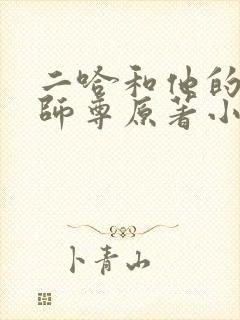 二哈和他的
師尊原著小
卜青山